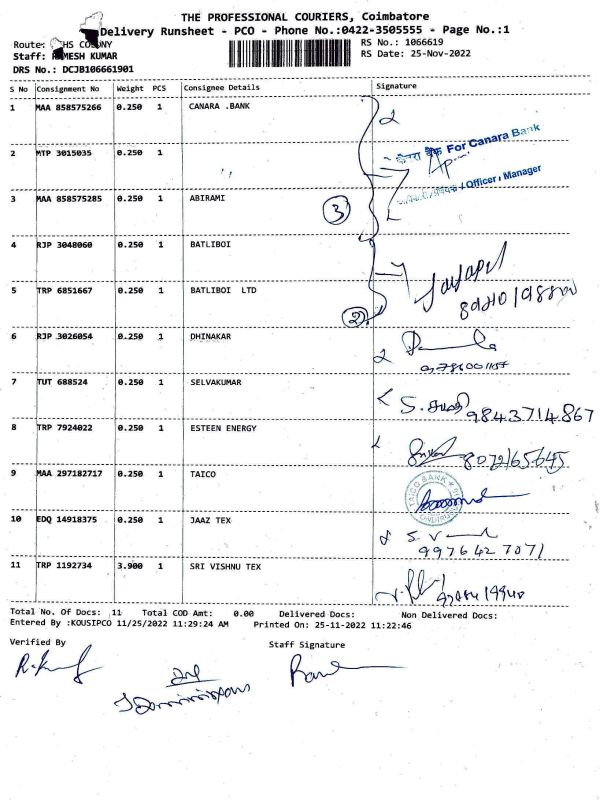 THE PROFESSIONAL COURIERS, Coimbatore
Delivery Runsheet - PCO - Phone No.:0422-3505555 - Page No.:1
Route: HS COLONY
RS No.: 1066619
Staff: RAMESH KUMAR
RS Date: 25-Nov-2022
DRS No.: DCJB106661901
S No Consignment No Weight PCS Consignee Details Signature
1 MAA 858575266 0.250 1 CANARA .BANK
2 MTP 3015035 0.250 1
केनरा बैंक For Canara Bank
/ Officer / Manager
3 MAA 858575285 0.250 1 ABIRAMI
3
4 RJP 3048060 0.250 1 BATLIBOI
5 TRP 6851667 0.250 1 BATLIBOI LTD
2
6 RJP 3026054 0.250 1 DHINAKAR
7 TUT 688524 0.250 1 SELVAKUMAR
S. 9843714867
8 TRP 7924022 0.250 1 ESTEEN ENERGY
8072165645
9 MAA 297182717 0.250 1 TAICO
TAICO BANK
10 EDQ 14918375 0.250 1 JAAZ TEX
9976427071
11 TRP 1192734 3.900 1 SRI VISHNU TEX
Total No. Of Docs: 11 Total COD Amt: 0.00 Delivered Docs: Non Delivered Docs:
Entered By :KOUSIPCO 11/25/2022 11:29:24 AM Printed On: 25-11-2022 11:22:46
Verified By
Staff Signature